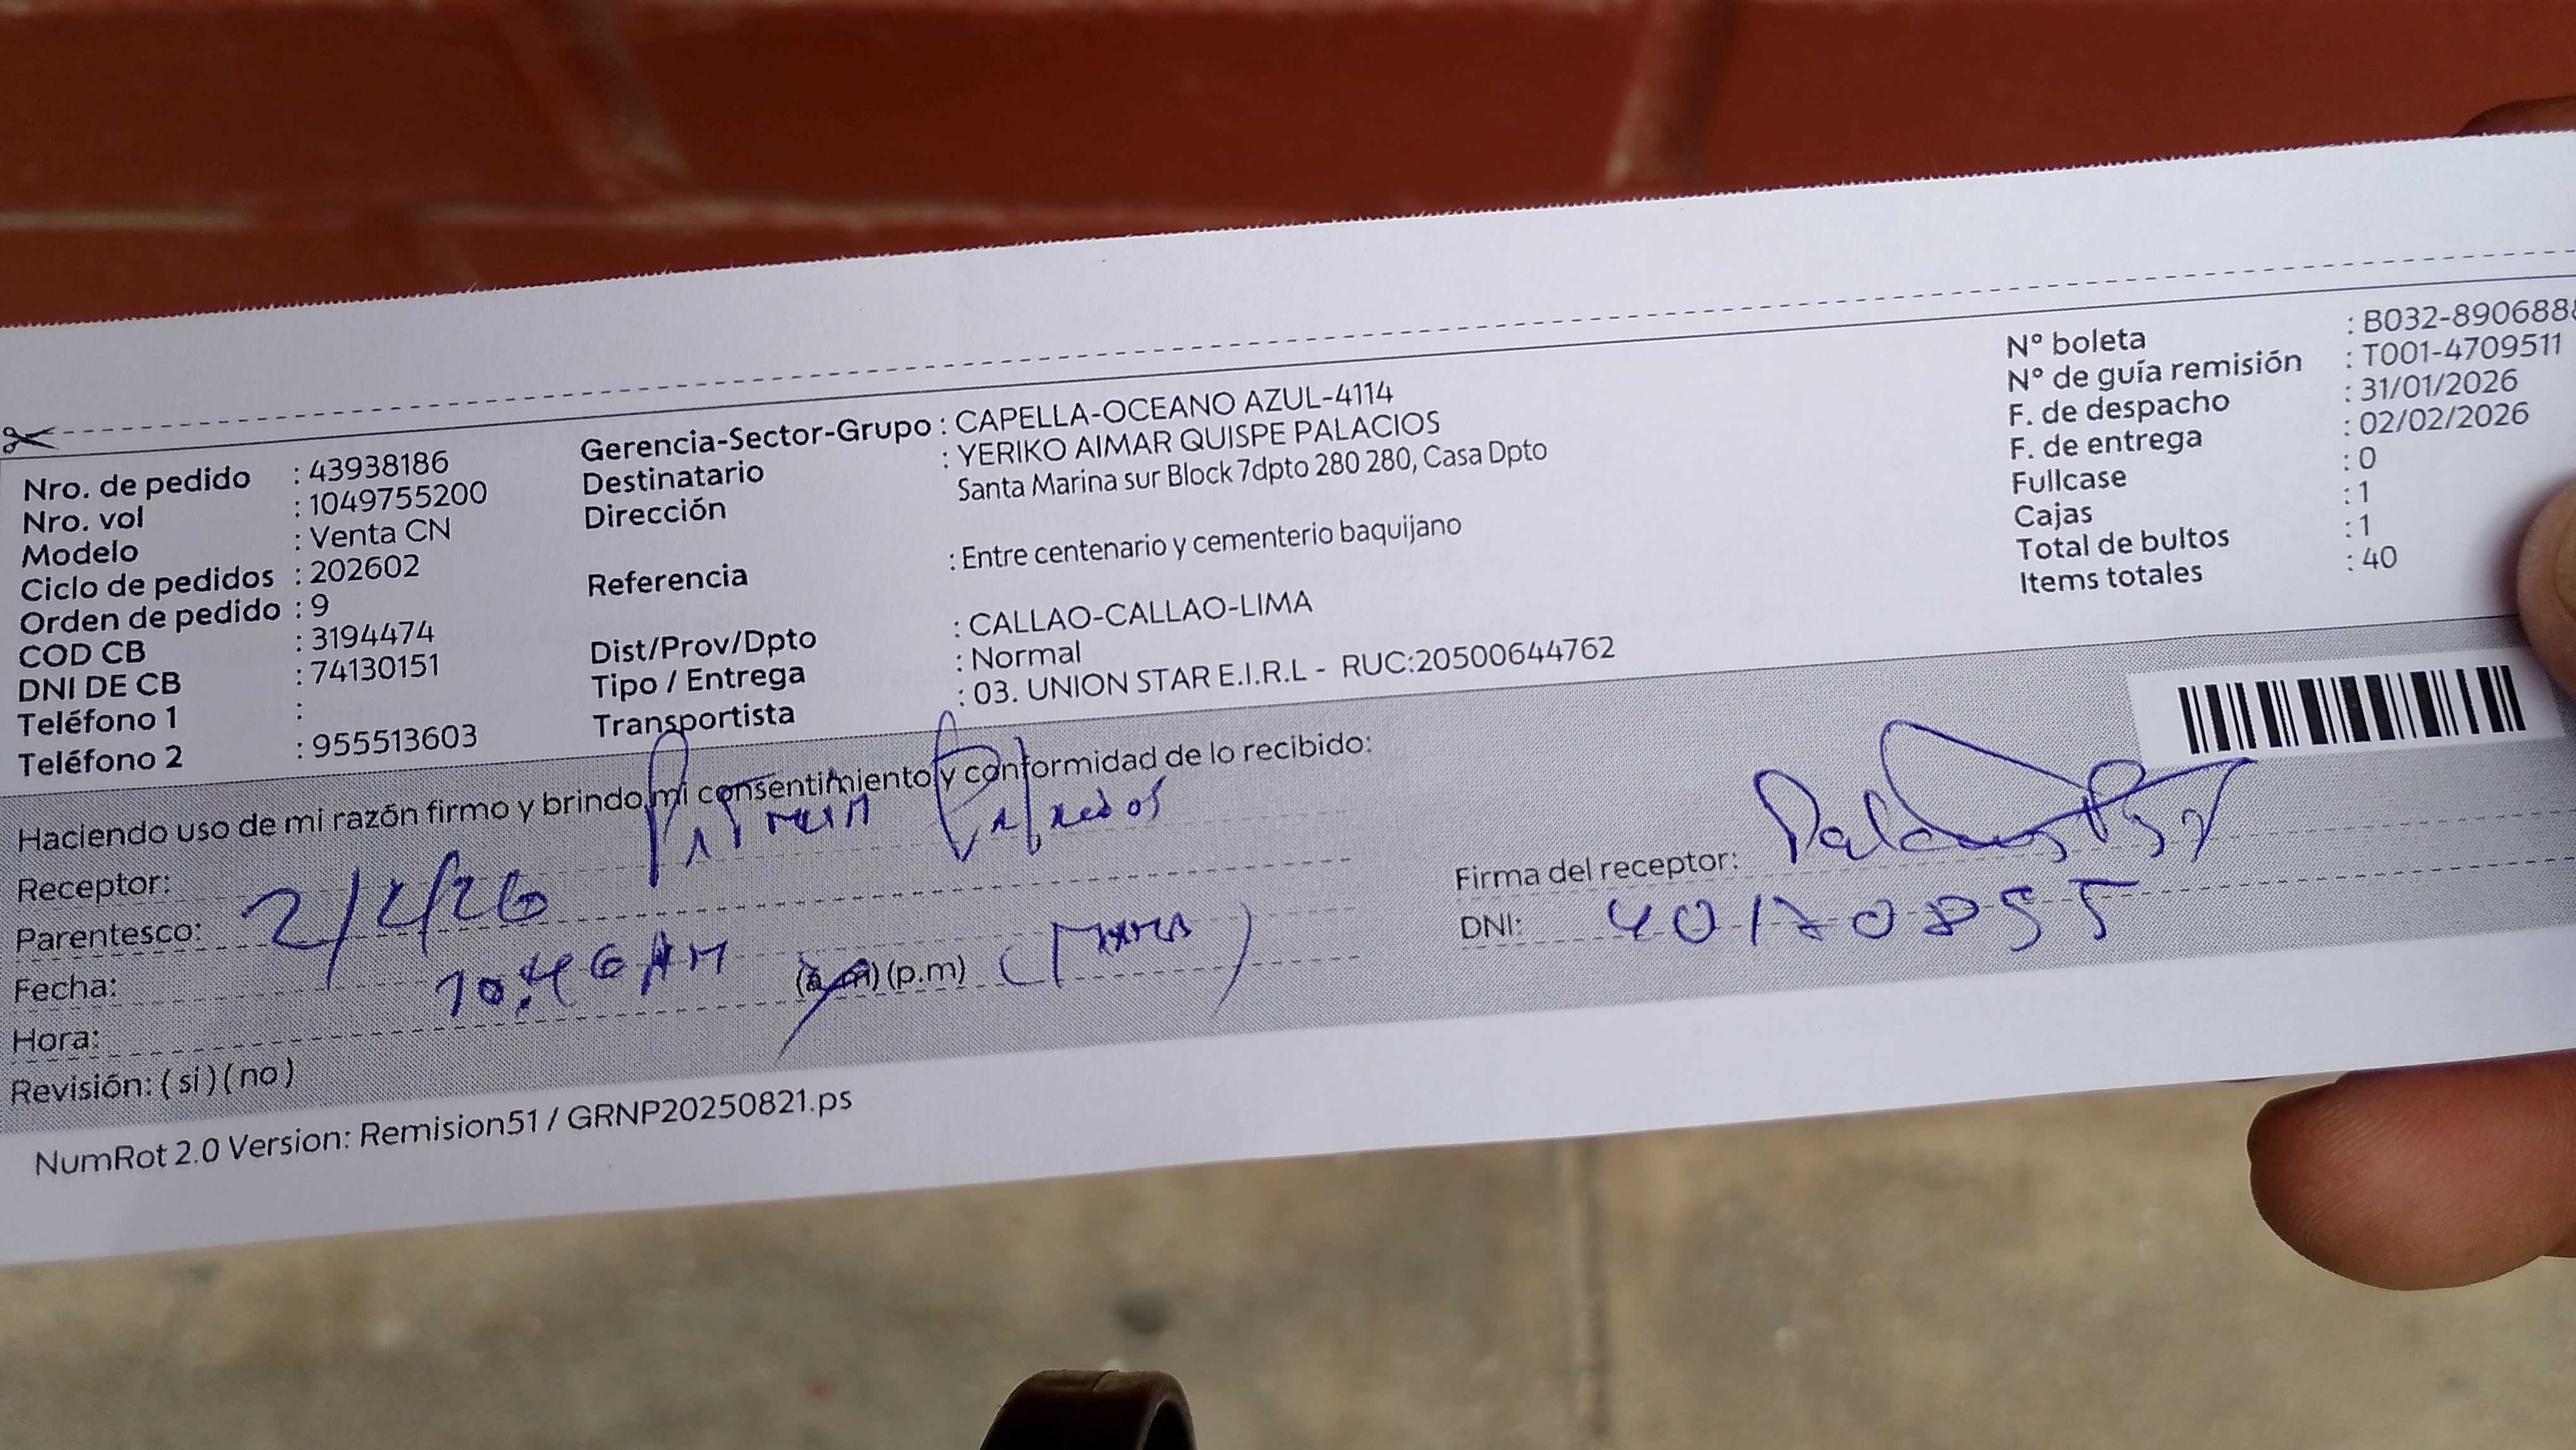 Nro. de pedido : 43938186
Nro. vol : 1049755200
Modelo : Venta CN
Ciclo de pedidos : 202602
Orden de pedido : 9
COD CB : 3194474
DNI DE CB : 74130151
Teléfono 1 :
Teléfono 2 : 955513603
Gerencia-Sector-Grupo : CAPELLA-OCEANO AZUL-4114
Destinatario : YERIKO AIMAR QUISPE PALACIOS
Dirección Santa Marina sur Block 7dpto 280 280, Casa Dpto
Referencia : Entre centenario y cementerio baquijano
Dist/Prov/Dpto : CALLAO-CALLAO-LIMA
Tipo / Entrega : Normal
Transportista : 03. UNION STAR E.I.R.L - RUC:20500644762
N° boleta : B032-890688
N° de guía remisión : T001-4709511
F. de despacho : 31/01/2026
F. de entrega : 02/02/2026
Fullcase : 0
Cajas : 1
Total de bultos : 1
Items totales : 40
Haciendo uso de mi razón firmo y brindo mi consentimiento y conformidad de lo recibido:
Receptor:
Parentesco:
Fecha: 2/2/26
Hora: 10:46 AM (a.m) (p.m)
Revisión: ( si ) ( no )
Firma del receptor:
DNI: 40170855
NumRot 2.0 Version: Remision51 / GRNP20250821.ps